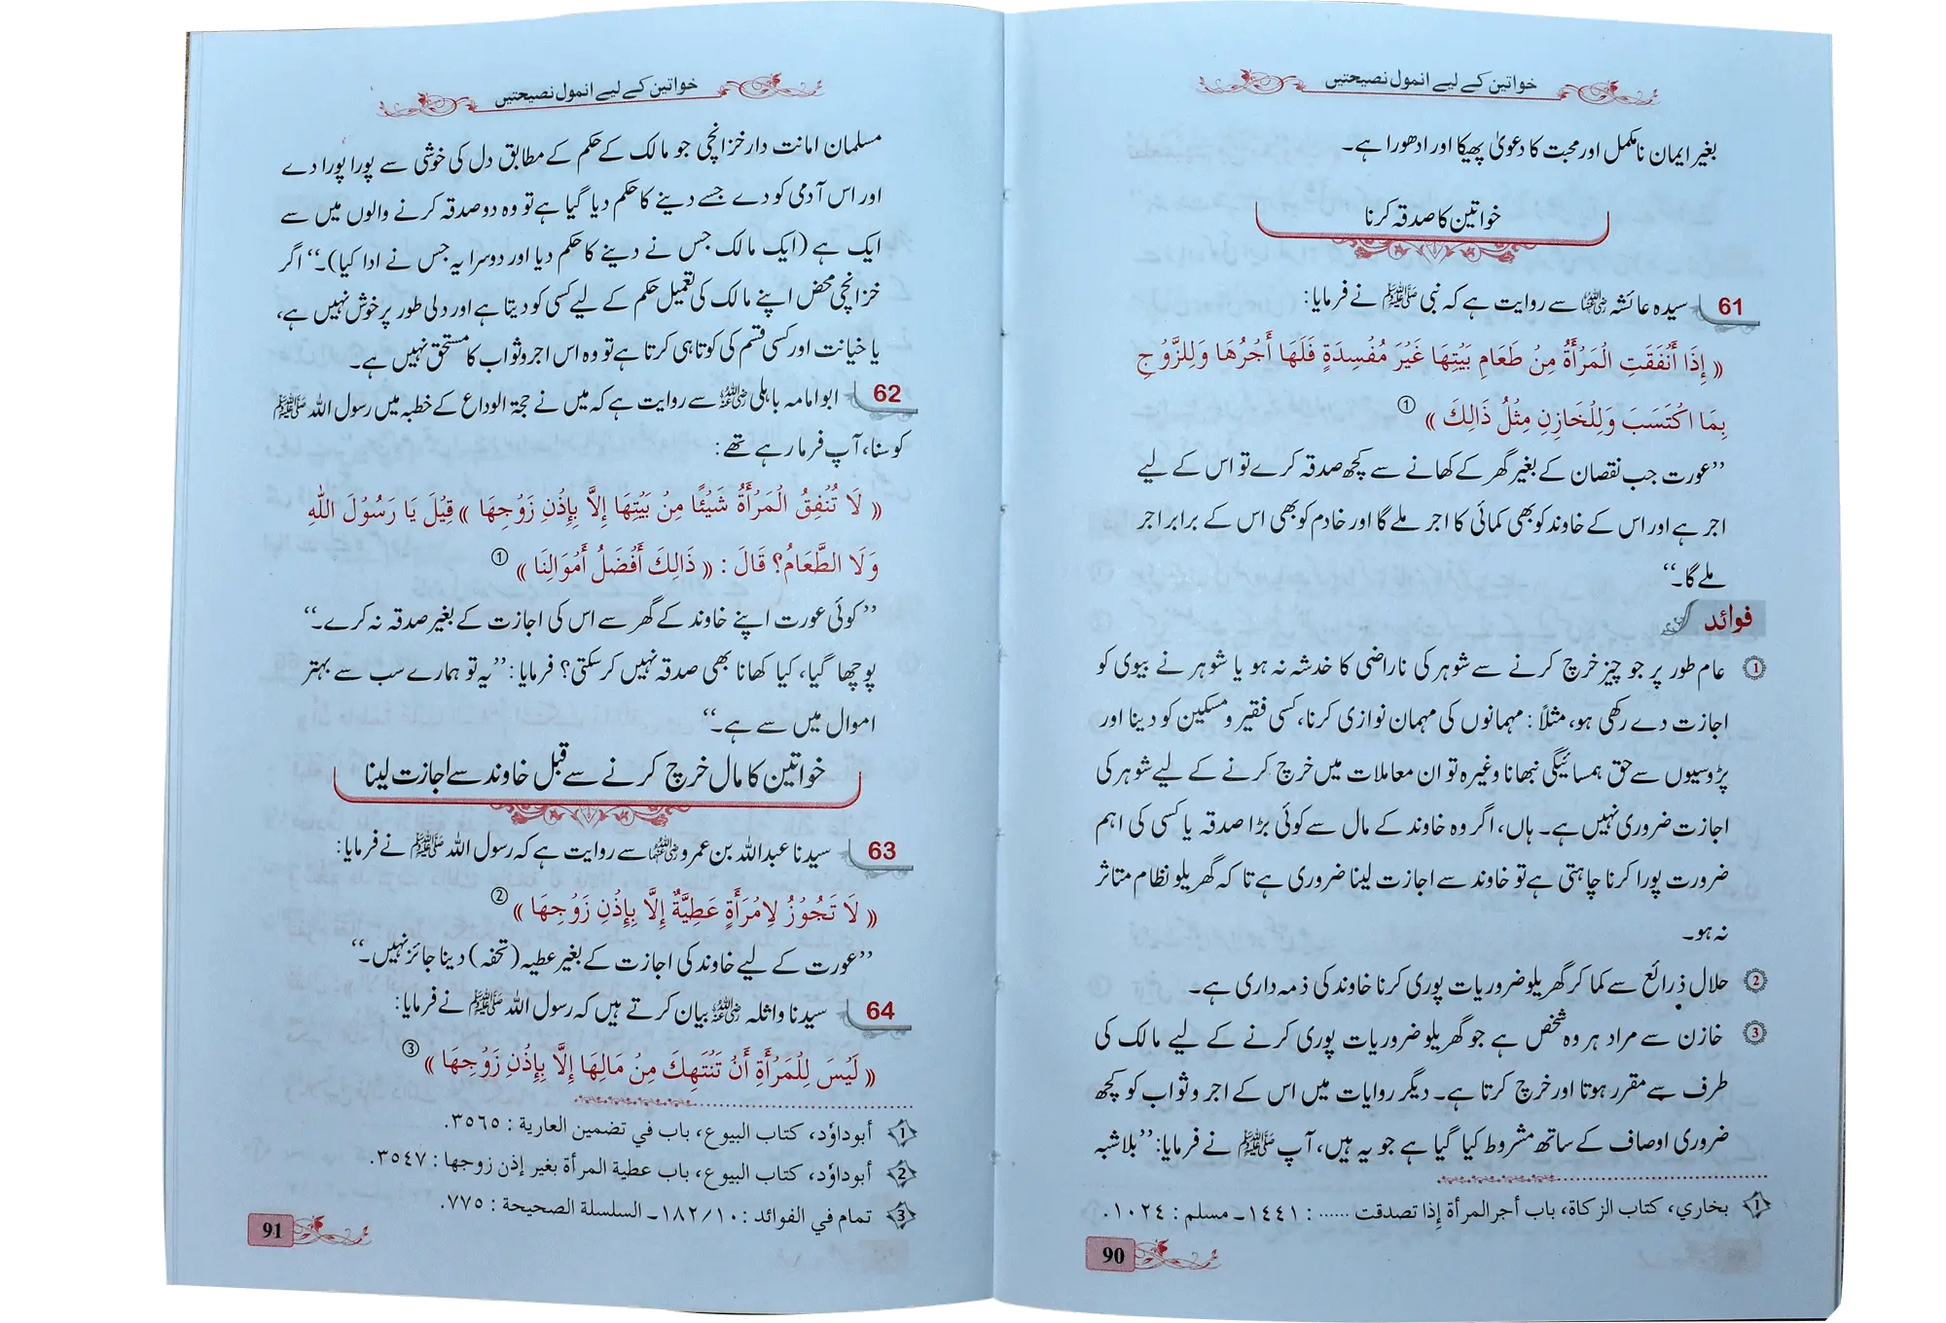 خواتین کے لیے انمول نصیحتیں
بغیر ایمان نامکمل اور محبت کا دعویٰ پھیکا اور ادھورا ہے۔
خواتین کا صدقہ کرنا
61 سیدہ عائشہ رضی اللہ عنہا سے روایت ہے کہ نبی ﷺ نے فرمایا:
« إِذَا أَنْفَقَتِ الْمَرْأَةُ مِنْ طَعَامِ بَيْتِهَا غَيْرَ مُفْسِدَةٍ فَلَهَا أَجْرُهَا وَلِلزَّوْجِ
بِمَا اكْتَسَبَ وَلِلْخَازِنِ مِثْلُ ذَالِكَ » ①
’’عورت جب نقصان کے بغیر گھر کے کھانے سے کچھ صدقہ کرے تو اس کے لیے
اجر ہے اور اس کے خاوند کو بھی کمائی کا اجر ملے گا اور خادم کو بھی اس کے برابر اجر
ملے گا۔‘‘
فوائد
① عام طور پر جو چیز خرچ کرنے سے شوہر کی ناراضی کا خدشہ نہ ہو یا شوہر نے بیوی کو
اجازت دے رکھی ہو، مثلاً : مہمانوں کی مہمان نوازی کرنا، کسی فقیر و مسکین کو دینا اور
پڑوسیوں سے حق ہمسائیگی نبھانا وغیرہ تو ان معاملات میں خرچ کرنے کے لیے شوہر کی
اجازت ضروری نہیں ہے۔ ہاں، اگر وہ خاوند کے مال سے کوئی بڑا صدقہ یا کسی کی اہم
ضرورت پورا کرنا چاہتی ہے تو خاوند سے اجازت لینا ضروری ہے تا کہ گھریلو نظام متاثر
نہ ہو۔
② حلال ذرائع سے کما کر گھریلو ضروریات پوری کرنا خاوند کی ذمہ داری ہے۔
③ خازن سے مراد ہر وہ شخص ہے جو گھریلو ضروریات پوری کرنے کے لیے مالک کی
طرف سے مقرر ہوتا اور خرچ کرتا ہے۔ دیگر روایات میں اس کے اجر و ثواب کو کچھ
ضروری اوصاف کے ساتھ مشروط کیا گیا ہے جو یہ ہیں، آپ ﷺ نے فرمایا: ’’بلاشبہ
① بخاري، كتاب الزكاة، باب أجر المرأة إذا تصدقت ...... : ١٤٤١ـ مسلم : ١٠٢٤.
90
خواتین کے لیے انمول نصیحتیں
مسلمان امانت دار خزانچی جو مالک کے حکم کے مطابق دل کی خوشی سے پورا پورا دے
اور اس آدمی کو دے جسے دینے کا حکم دیا گیا ہے تو وہ دو صدقہ کرنے والوں میں سے
ایک ہے (ایک مالک جس نے دینے کا حکم دیا اور دوسرا یہ جس نے ادا کیا)۔‘‘ اگر
خزانچی محض اپنے مالک کی تعمیل حکم کے لیے کسی کو دیتا ہے اور دلی طور پر خوش نہیں ہے،
یا خیانت اور کسی قسم کی کوتاہی کرتا ہے تو وہ اس اجر و ثواب کا مستحق نہیں ہے۔
62 ابوامامہ باہلی رضی اللہ عنہ سے روایت ہے کہ میں نے حجۃ الوداع کے خطبہ میں رسول اللہ ﷺ
کو سنا، آپ فرما رہے تھے:
« لَا تُنْفِقُ الْمَرْأَةُ شَيْئًا مِنْ بَيْتِهَا إِلَّا بِإِذْنِ زَوْجِهَا » قِيْلَ يَا رَسُوْلَ اللهِ
وَلَا الطَّعَامُ؟ قَالَ : « ذَالِكَ أَفْضَلُ أَمْوَالِنَا » ①
’’کوئی عورت اپنے خاوند کے گھر سے اس کی اجازت کے بغیر صدقہ نہ کرے۔‘‘
پوچھا گیا، کیا کھانا بھی صدقہ نہیں کر سکتی؟ فرمایا: ’’یہ تو ہمارے سب سے بہتر
اموال میں سے ہے۔‘‘
خواتین کا مال خرچ کرنے سے قبل خاوند سے اجازت لینا
63 سیدنا عبداللہ بن عمرو رضی اللہ عنہما سے روایت ہے کہ رسول اللہ ﷺ نے فرمایا:
« لَا تَجُوْزُ لِامْرَأَةٍ عَطِيَّةٌ إِلَّا بِإِذْنِ زَوْجِهَا » ②
’’عورت کے لیے خاوند کی اجازت کے بغیر عطیہ (تحفہ) دینا جائز نہیں۔‘‘
64 سیدنا واثلہ رضی اللہ عنہ بیان کرتے ہیں کہ رسول اللہ ﷺ نے فرمایا:
« لَيْسَ لِلْمَرْأَةِ أَنْ تَنْتَهِكَ مِنْ مَالِهَا إِلَّا بِإِذْنِ زَوْجِهَا » ③
① أبوداوٗد، كتاب البيوع، باب في تضمين العارية : ٣٥٦٥.
② أبوداوٗد، كتاب البيوع، باب عطية المرأة بغير إذن زوجها : ٣٥٤٧.
③ تمام في الفوائد : ١٨٢/١٠ـ السلسلة الصحيحة : ٧٧٥.
91